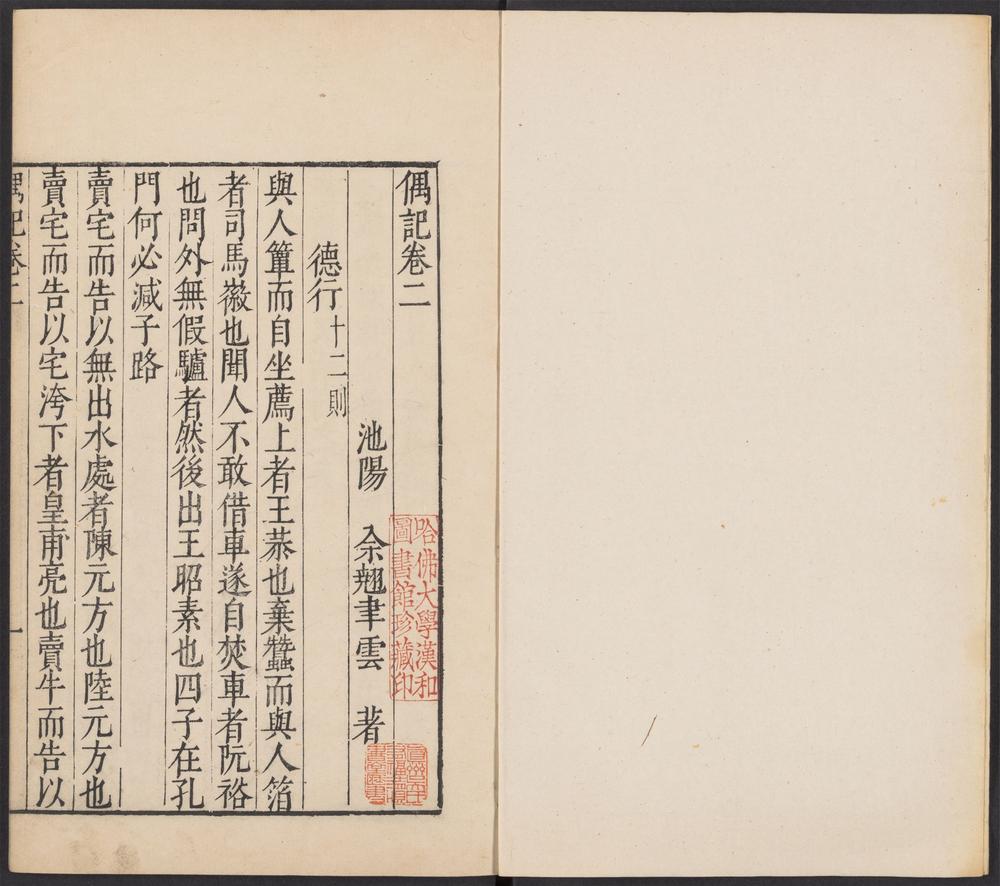 偶記卷二
池陽 余翹聿雲 著
德行十二則
與人簟而自坐薦上者王恭也棄蠶而與人箔
者司馬徽也聞人不敢借車遂自焚車者阮裕
也問外無假驢者然後出王昭素也四子在孔
門何必減子路
賣宅而告以無出水處者陳元方也陸元方也
賣宅而告以宅洿下者皇甫亮也賣牛而告以
偶記卷二 一
哈佛大學漢和
圖書館珍藏印